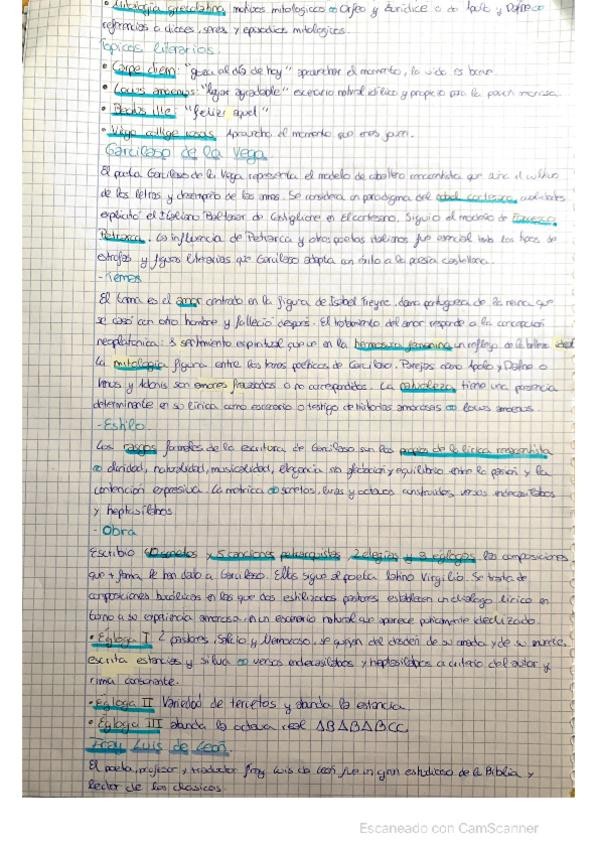 • Mitología grecolatina motivos mitologicos Orfeo y Eurídice o de Apolo y Dafne
referencias a dioses, seres y episodios mitologicos.
Tópicos literarios.
• Carpe diem: "goza al día de hoy" aprovechar el momento, la vida es breve.
• Locus amoenus: "lugar agradable" escenario natural idílico y propicio para la pasión amorosa.
• Beatus ille: "feliz aquel"
• Virgo collige rosas Aprovecha el momento que eres joven.
Garcilaso de la Vega
El poeta Garcilaso de la Vega representa el modelo de caballero renacentista que aúna el cultivo
de las letras y desempeño de las armas. Se considera un paradigma del ideal cortesano, cualidades
explicitó el italiano Baltasar de Castiglione en El cortesano. Siguió el modelo de Francesco
Petrarca. La influencia de Petrarca y otros poetas italianos fue esencial los tipos de
estrofas y figuras literarias que Garcilaso adapta con éxito a la poesía castellana.
- Temas
El tema es el amor centrado en la figura de Isabel Freyre, dama portuguesa de la reina que
se casó con otro hombre y falleció después. El tratamiento del amor responde a la concepción
neoplatónica: sentimiento espiritual que ve en la hermosura femenina un reflejo de la belleza ideal
La mitología figura entre los temas poéticos de Garcilaso. Parejas como Apolo y Dafne o
Venus y Adonis son amores frustrados o no correspondidos. La naturaleza tiene una presencia
determinante en su lírica como escenario o testigo de historias amorosas locus amoenus.
- Estilo.
Los rasgos formales de la escritura de Garcilaso son los propios de la lírica renacentista
claridad, naturalidad, musicalidad, elegancia sin afectación y equilibrio entre la pasión y la
contención expresiva. La métrica sonetos, liras y octavas construidas versos endecasílabos
y heptasílabos
- Obra
Escribió 40 sonetos y 5 canciones petrarquistas, 2 elegías y 3 églogas las composiciones
que + fama le han dado a Garcilaso. Ellas sigue al poeta latino Virgilio. Se trata de
composiciones bucólicas en las que dos estilizados pastores establecen un diálogo lírico en
torno a su experiencia amorosa en un escenario natural que aparece puramente idealizado.
• Égloga I 2 pastores, Salicio y Nemoroso, se quejan del desdén de su amada y de su muerte.
escrita estancias y silva versos endecasílabos y heptasílabos a criterio del autor y
rima consonante.
• Égloga II Variedad de tercetos y abunda la estancia.
• Égloga III abunda la octava real ABABABCC
Fray Luis de León.
El poeta, profesor y traductor fray Luis de León fue un gran estudioso de la Biblia y
lector de los clásicos.
Escaneado con CamScanner